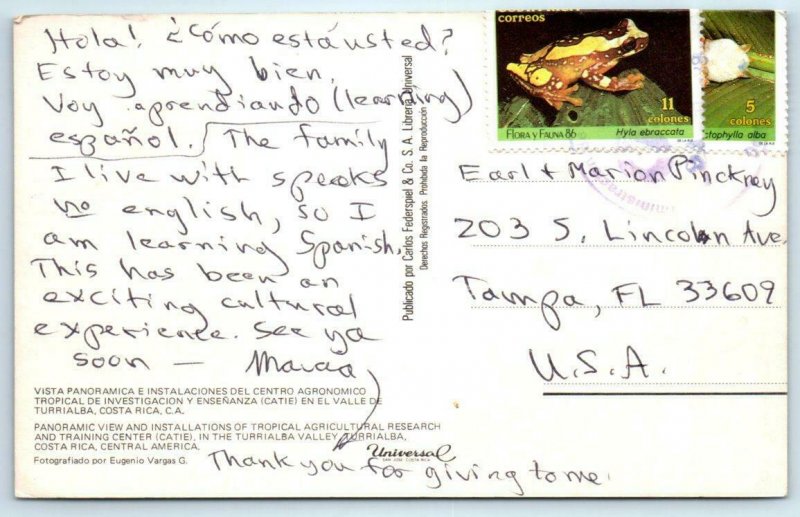 Hola! ¿Cómo está usted?
Estoy muy bien.
Voy aprendiando (learning)
español. The family
I live with speaks
no english, so I
am learning Spanish.
This has been an
exciting cultural
experience. See ya
soon —
Thank you for giving to me.
VISTA PANORAMICA E INSTALACIONES DEL CENTRO AGRONOMICO
TROPICAL DE INVESTIGACION Y ENSEÑANZA (CATIE) EN EL VALLE DE
TURRIALBA, COSTA RICA, C.A.
PANORAMIC VIEW AND INSTALLATIONS OF TROPICAL AGRICULTURAL RESEARCH
AND TRAINING CENTER (CATIE), IN THE TURRIALBA VALLEY, TURRIALBA,
COSTA RICA, CENTRAL AMERICA.
Fotografiado por Eugenio Vargas G.
Universal
SAN JOSE, COSTA RICA
Publicado por Carlos Federspiel & Co. S.A. Librería Universal
Derechos Registrados. Prohibida la Reproducción
correos
11
colones
FLORA Y FAUNA 86
Hyla ebraccata
5
colones
ctophylla alba
Earl + Marion Pinckney
203 S. Lincoln Ave.
Tampa, FL 33609
U.S.A.